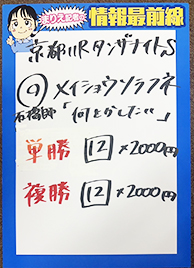 まりえ記者の
情報最前線
京都11RタンザナイトS
⑨メイショウソラフネ
石橋師「何とかしたい」
単勝 12 ×2000円
複勝 12 ×2000円